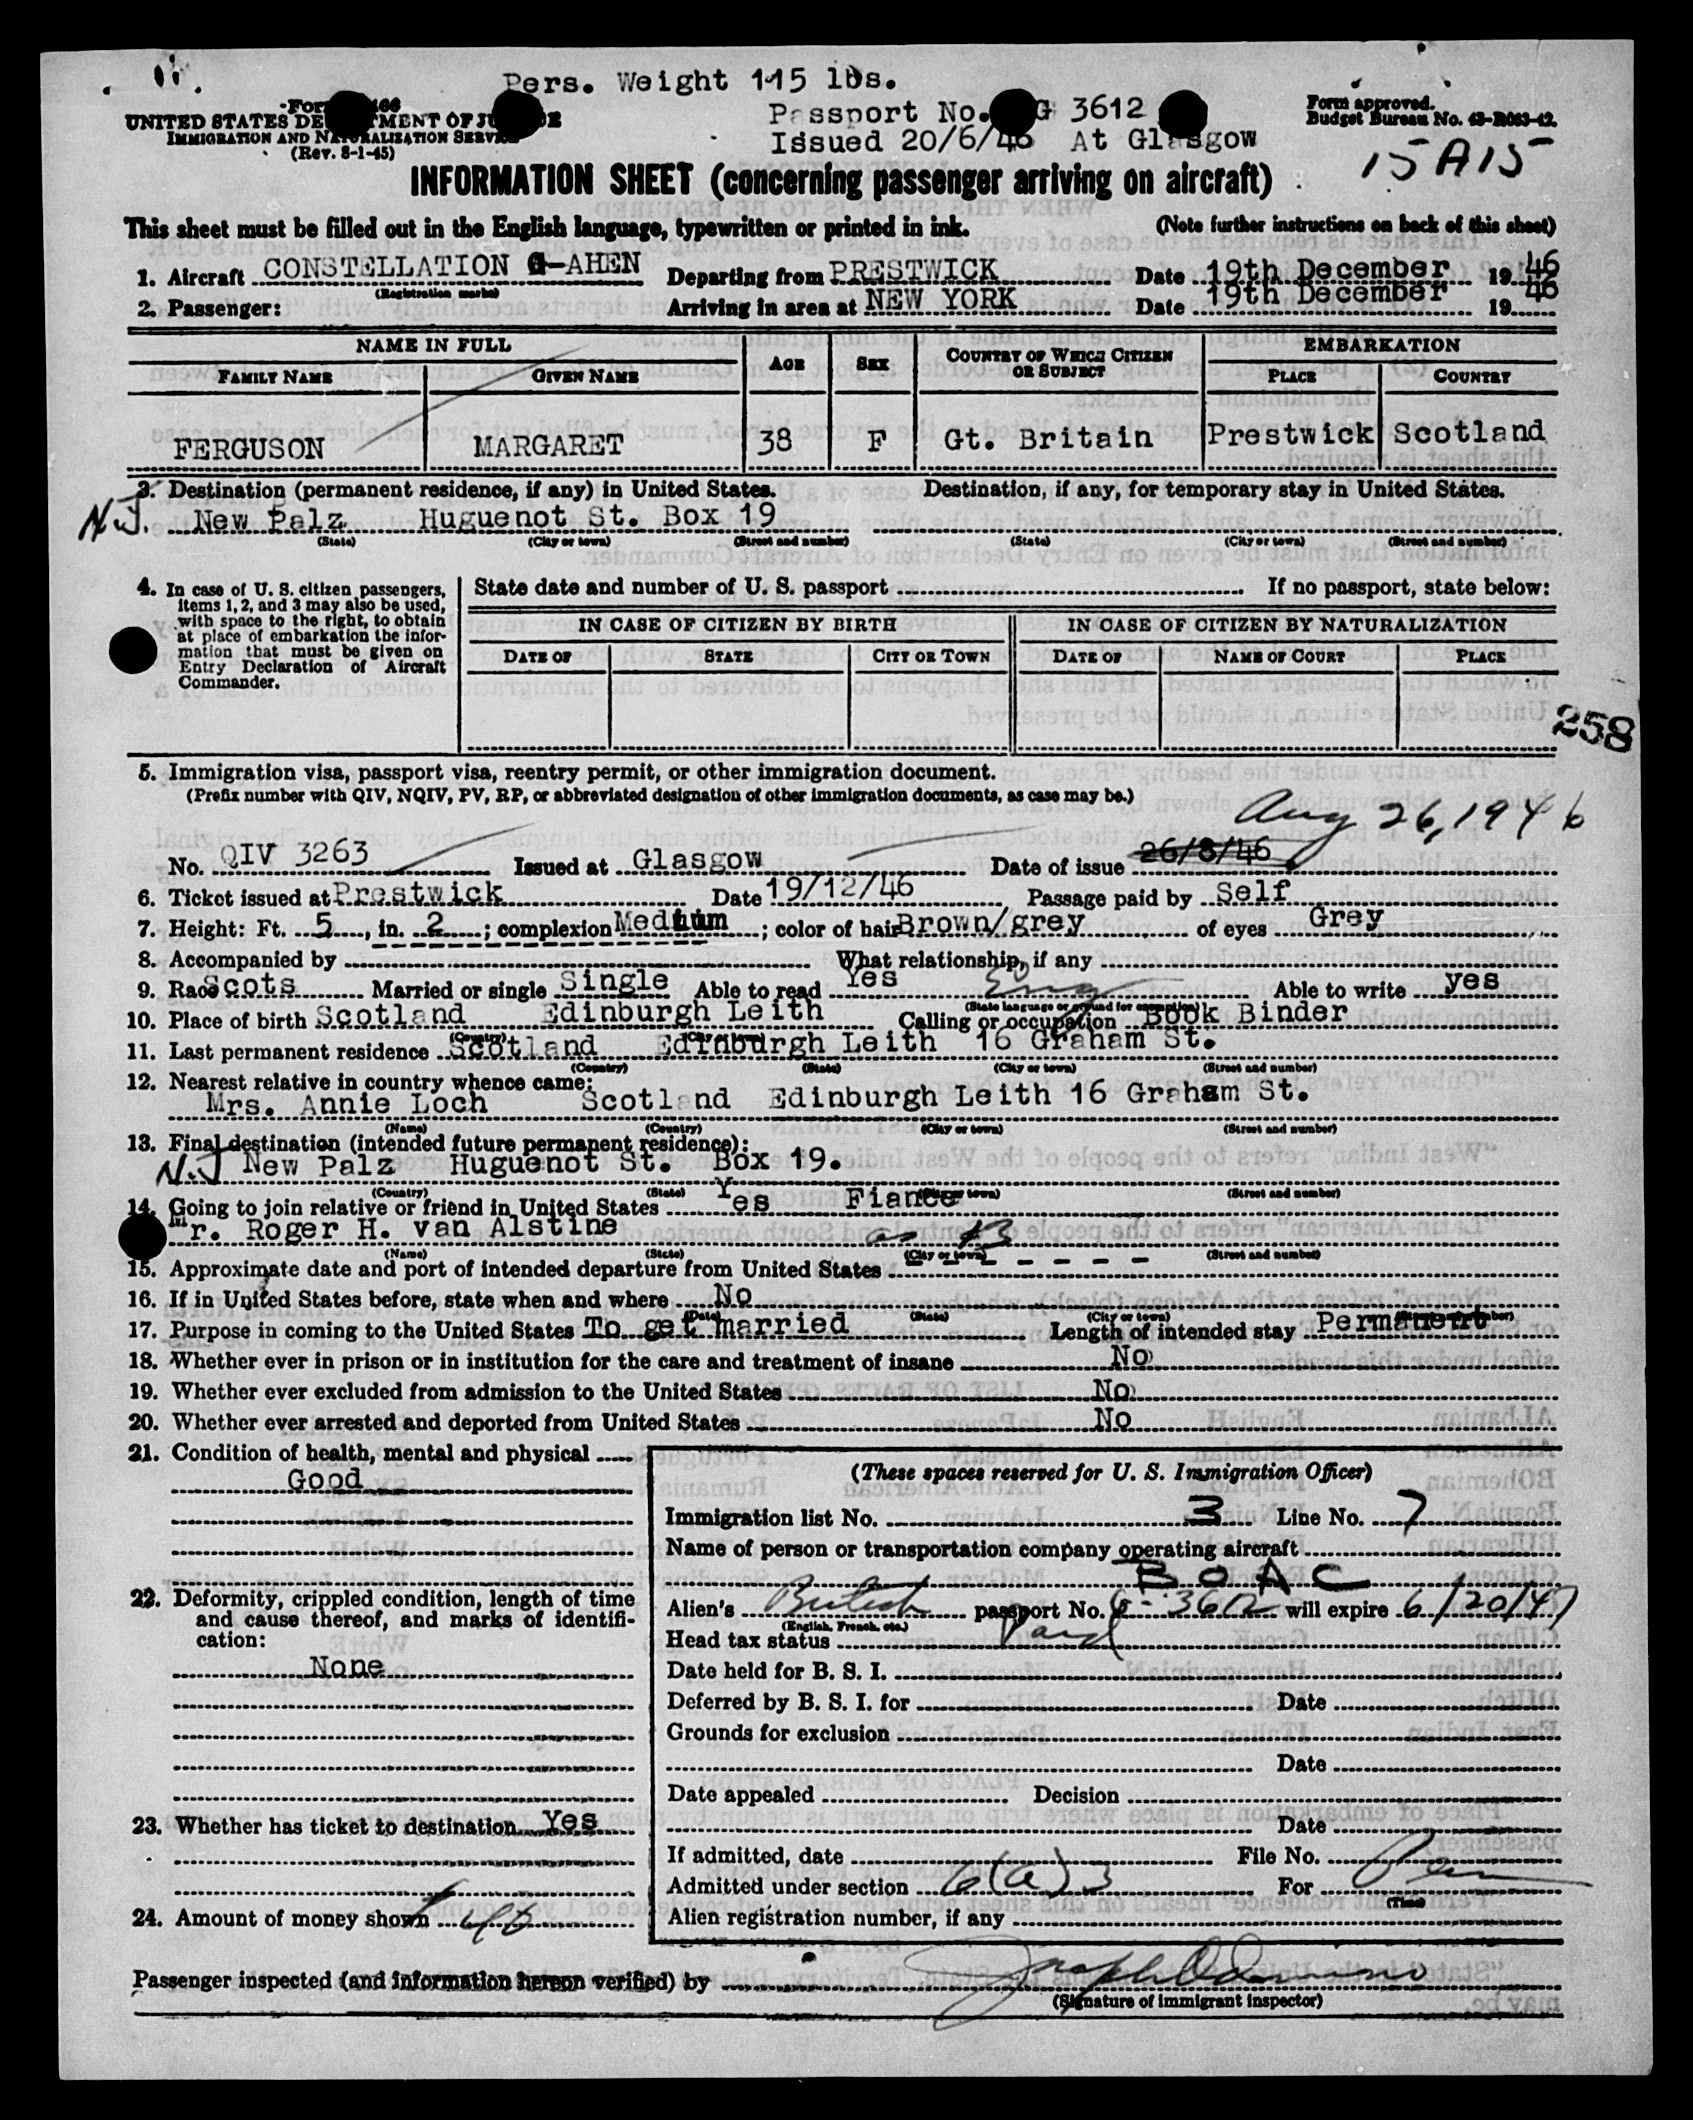 Pers. Weight 115 lbs.
UNITED STATES DEPARTMENT OF JUSTICE
IMMIGRATION AND NATURALIZATION SERVICE
(Rev. 8-1-45)
Passport No. G 3612
Issued 20/6/46 At Glasgow
Form approved.
Budget Bureau No. 43-R063-42.
15 A15
INFORMATION SHEET (concerning passenger arriving on aircraft)
This sheet must be filled out in the English language, typewritten or printed in ink. (Note further instructions on back of this sheet)
1. Aircraft CONSTELLATION G-AHEN Departing from PRESTWICK Date 19th December 1946
(Registration marks)
2. Passenger: Arriving in area at NEW YORK Date 19th December 1946
NAME IN FULL AGE SEX COUNTRY OF WHICH CITIZEN OR SUBJECT EMBARKATION
FAMILY NAME GIVEN NAME PLACE COUNTRY
FERGUSON MARGARET 38 F Gt. Britain Prestwick Scotland
3. Destination (permanent residence, if any) in United States. Destination, if any, for temporary stay in United States.
N.J. New Palz Huguenot St. Box 19
(State) (City or town) (Street and number) (State) (City or town) (Street and number)
4. In case of U. S. citizen passengers, items 1, 2, and 3 may also be used, with space to the right, to obtain at place of embarkation the information that must be given on Entry Declaration of Aircraft Commander.
State date and number of U. S. passport If no passport, state below:
IN CASE OF CITIZEN BY BIRTH IN CASE OF CITIZEN BY NATURALIZATION
DATE OF STATE CITY OR TOWN DATE OF NAME OF COURT PLACE
258
5. Immigration visa, passport visa, reentry permit, or other immigration document.
(Prefix number with QIV, NQIV, PV, RP, or abbreviated designation of other immigration documents, as case may be.)
Aug 26, 1946
No. QIV 3263 Issued at Glasgow Date of issue 26/8/46
6. Ticket issued at Prestwick Date 19/12/46 Passage paid by Self
7. Height: Ft. 5, in. 2; complexion Medium; color of hair Brown/grey of eyes Grey
8. Accompanied by What relationship, if any
9. Race Scots Married or single Single Able to read Yes Eng Able to write yes
(State language or ground for exemption)
10. Place of birth Scotland Edinburgh Leith Calling or occupation Book Binder
(Country) (City or town)
11. Last permanent residence Scotland Edinburgh Leith 16 Graham St.
(Country) (State) (City or town) (Street and number)
12. Nearest relative in country whence came:
Mrs. Annie Loch Scotland Edinburgh Leith 16 Graham St.
(Name) (Country) (City or town) (Street and number)
13. Final destination (intended future permanent residence):
N.J New Palz Huguenot St. Box 19.
(Country) (State) (City or town) (Street and number)
14. Going to join relative or friend in United States Yes Fiance
Mr. Roger H. van Alstine as 13
(Name) (State) (City or town) (Street and number)
15. Approximate date and port of intended departure from United States - - - - - - -
16. If in United States before, state when and where No
(Date) (State) (City or town) (Street and number)
17. Purpose in coming to the United States To get married Length of intended stay Permanent
18. Whether ever in prison or in institution for the care and treatment of insane No
19. Whether ever excluded from admission to the United States No
20. Whether ever arrested and deported from United States No
21. Condition of health, mental and physical
Good
22. Deformity, crippled condition, length of time and cause thereof, and marks of identification:
None
23. Whether has ticket to destination Yes
24. Amount of money shown
(These spaces reserved for U. S. Immigration Officer)
Immigration list No. 3 Line No. 7
Name of person or transportation company operating aircraft
B O A C
Alien's British passport No. G-3612 will expire 6/20/47
(English, French, etc.)
Head tax status Paid
Date held for B. S. I.
Deferred by B. S. I. for Date
Grounds for exclusion
Date
Date appealed Decision
Date
If admitted, date File No.
Admitted under section 6(a)3 For Perm
(Time)
Alien registration number, if any
Passenger inspected (and information hereon verified) by
(Signature of immigrant inspector)